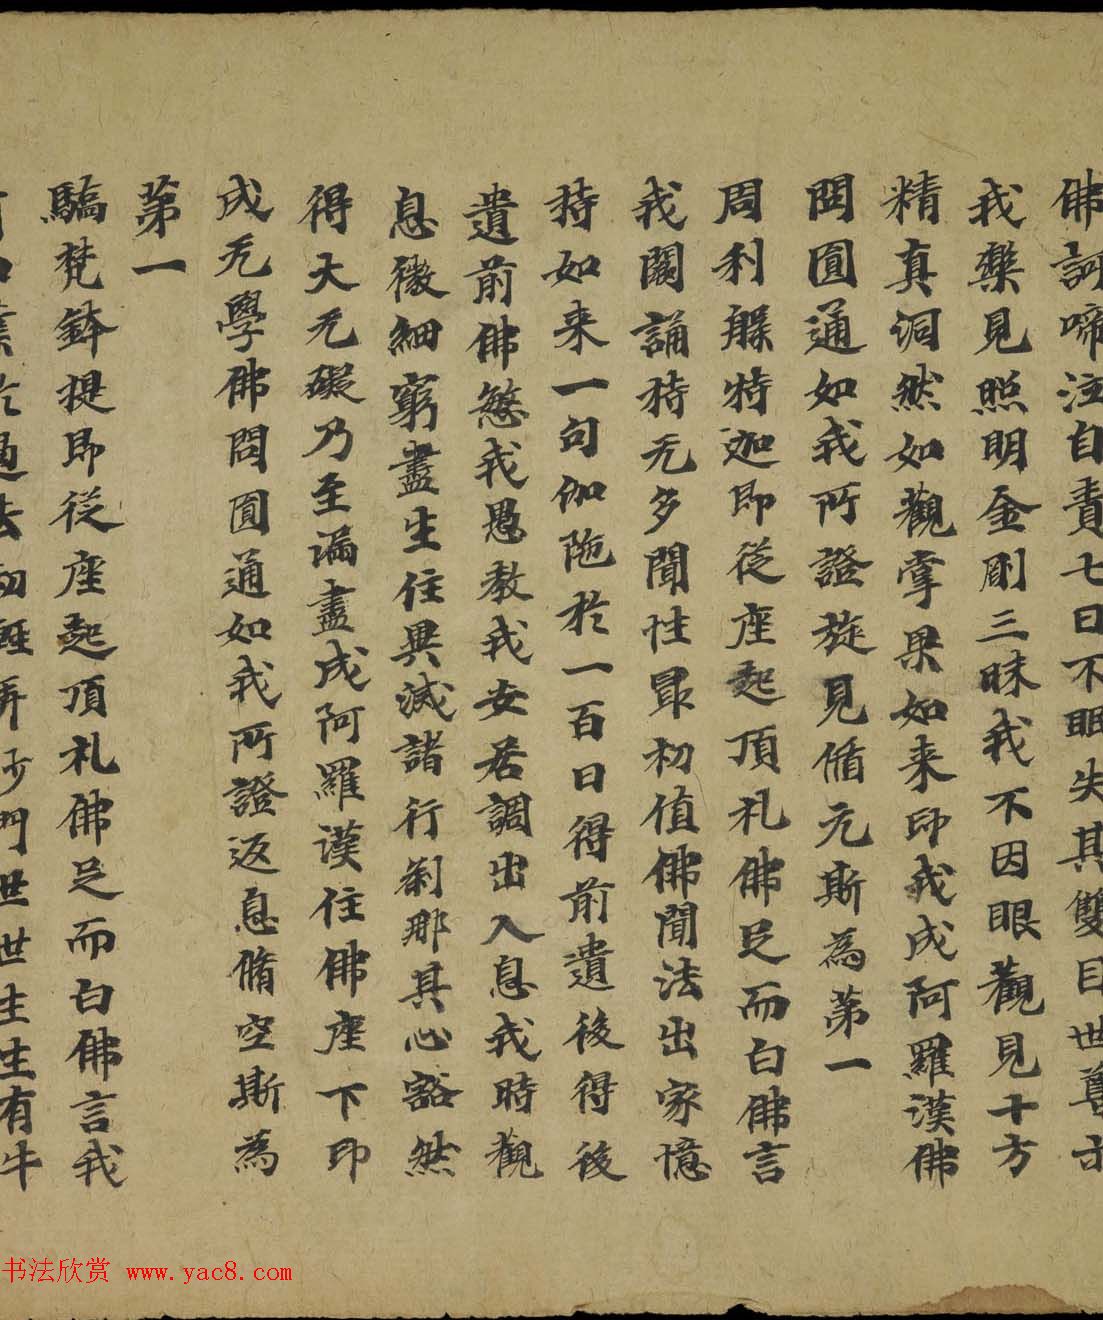 佛訶啼泣自責七日不眠失其雙目世尊示
我樂見照明金剛三昧我不因眼觀見十方
精真洞然如觀掌果如来印我成阿羅漢佛
問圓通如我所證旋見循元斯為苐一
周利槃特迦即從座起頂礼佛足而白佛言
我闕誦持无多聞性冣初值佛聞法出家憶
持如来一句伽陁於一百日得前遺後得後
遺前佛愍我愚教我安居調出入息我時觀
息微細窮盡生住異滅諸行刹那其心豁然
得大无礙乃至漏盡成阿羅漢住佛座下印
成无學佛問圓通如我所證返息脩空斯為
苐一
驕梵鉢提即從座起頂礼佛足而白佛言我
有口業於過去劫輕弄沙門世世生生有牛
书法欣赏 www.yac8.com